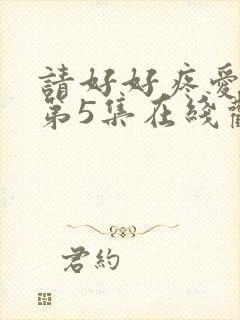 請好好疼愛
第5集在綫
君約